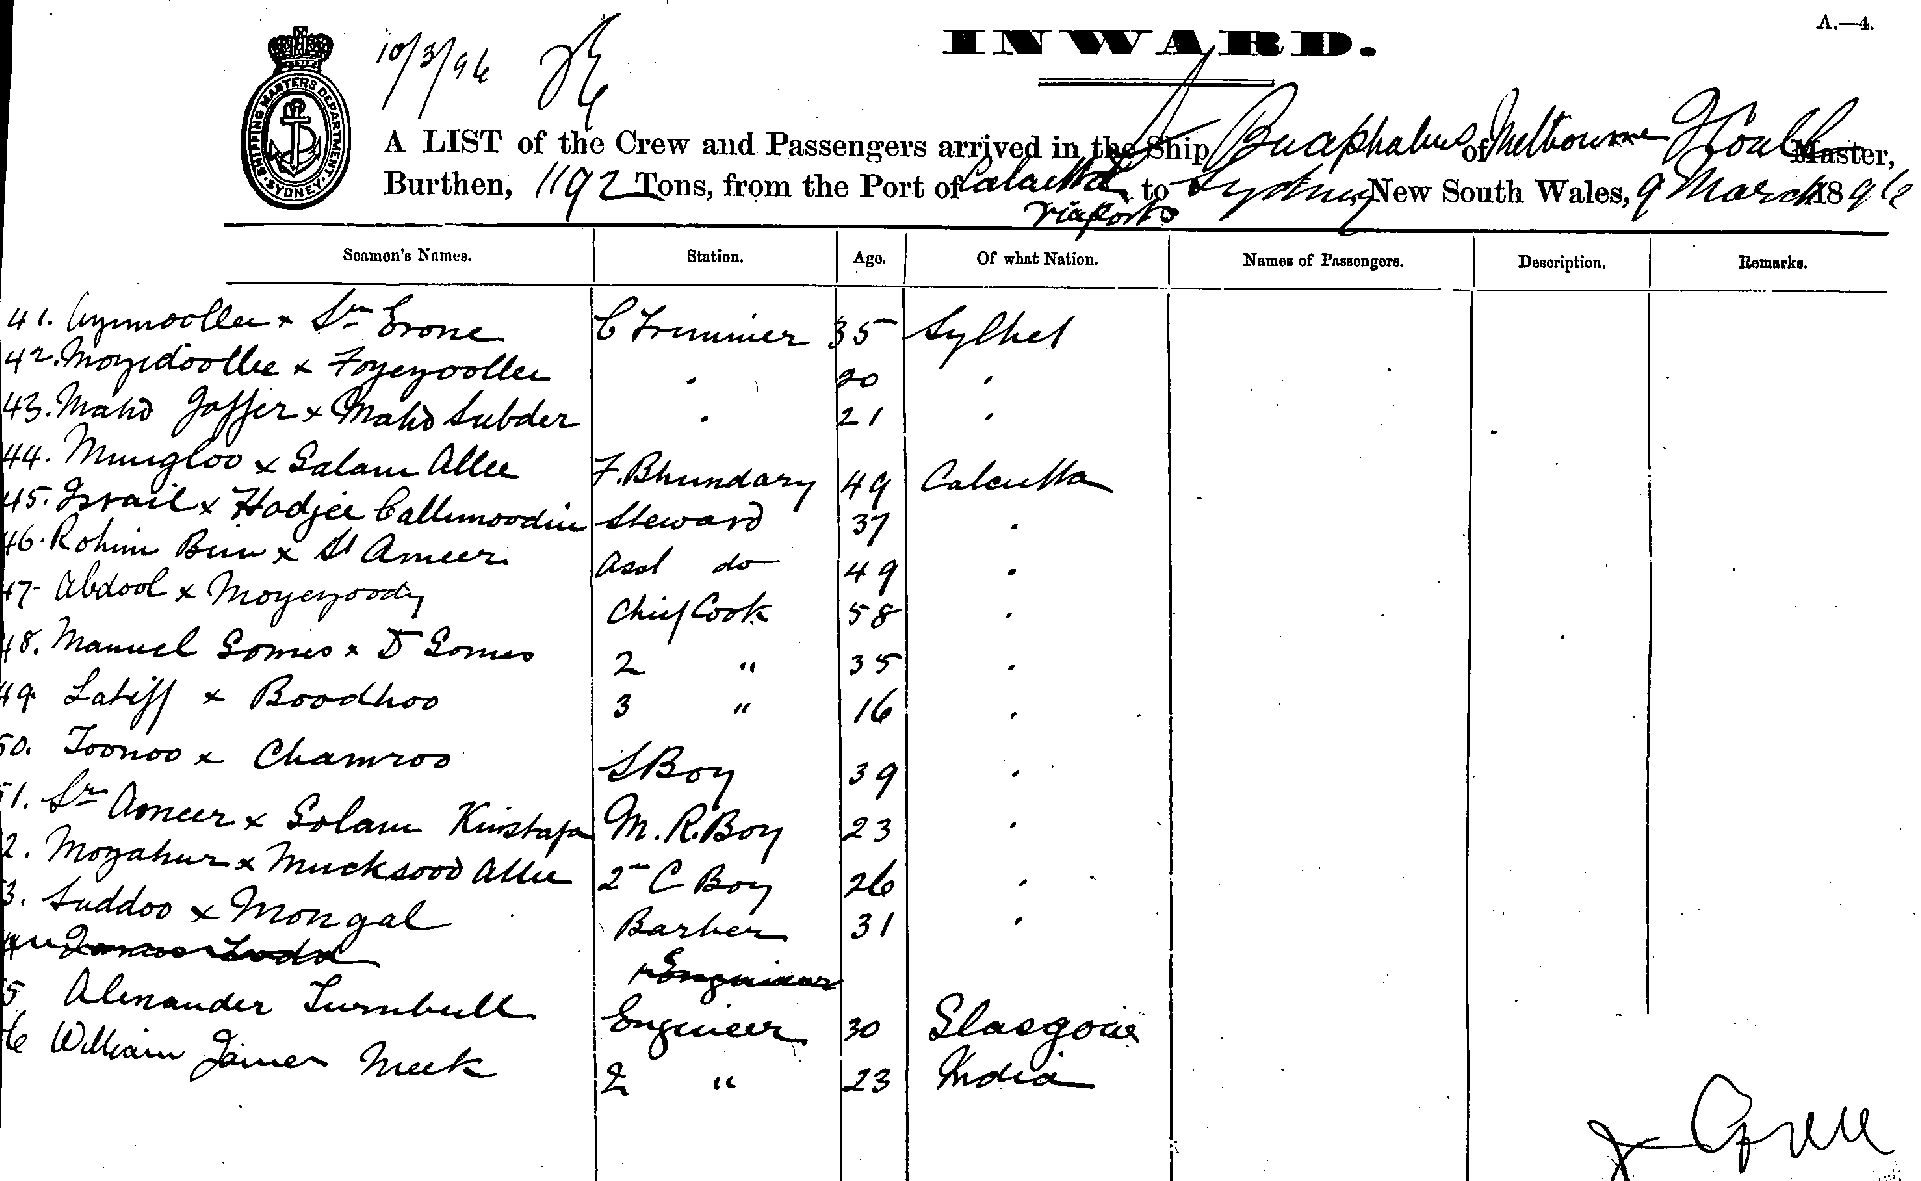 A.—4.
10/3/96
INWARD.
SHIPPING MASTERS DEPARTMENT SYDNEY N.S.W.
A LIST of the Crew and Passengers arrived in the Ship Bucaphalus of Melbourne Master,
Burthen, 1192 Tons, from the Port of Calcutta to Sydney New South Wales, 9 March 1896
via ports
Seamen's Names. Station. Age. Of what Nation. Names of Passengers. Description. Remarks.
41. x C Trimmer 35 Sylhet
42. Moyidoollee x Foyeyoollee " 20 "
43. Mahd Jaffer x Mahd Subder " 21 "
44. Mungloo x Golam Allee F. Bhundary 49 Calcutta
45. Israil x Hadjee Callimoodin Steward 37 "
46. Rohim Bux x Sk Ameer Asst do 49 "
47. Abdool x Moyeyoody Chief Cook 58 "
48. Manuel Gomes x D Gomes 2 " 35 "
49. Latiff x Boodhoo 3 " 16 "
50. Toonoo x Chamroo S Boy 39 "
51. Sk Ameer x Golam M. R. Boy 23 "
2. Mozahur x Mucksood Allee 2nd C Boy 26 "
3. Suddoo x Mongal Barber 31 "
Engineer
5 Alexander Turnbull Engineer 30 Glasgow
6 William James Meek 2 " 23 India